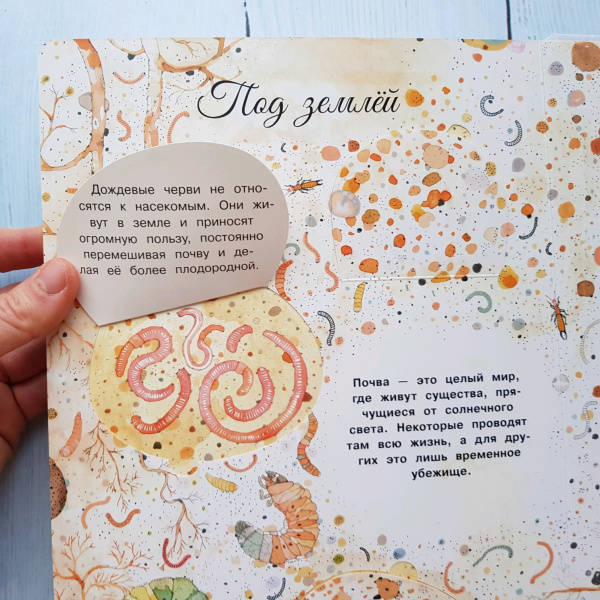 Под землёй
Дождевые черви не отно-
сятся к насекомым. Они жи-
вут в земле и приносят
огромную пользу, постоянно
перемешивая почву и де-
лая её более плодородной.
Почва — это целый мир,
где живут существа, пря-
чущиеся от солнечного
света. Некоторые проводят
там всю жизнь, а для дру-
гих это лишь временное
убежище.